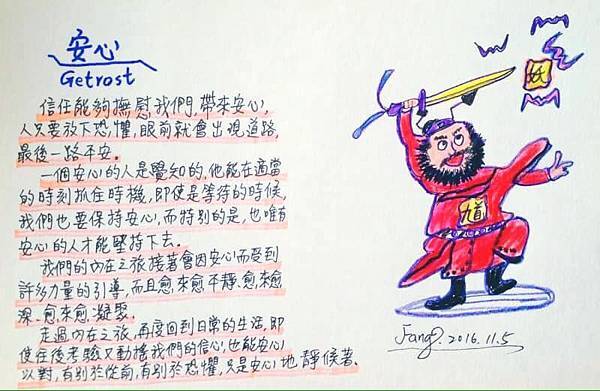 安心
Getrost
信任能夠撫慰我們,帶來安心。
人只要放下恐懼,眼前就會出現道路,
最後一路平安。
一個安心的人是覺知的,他能在適當
的時刻抓住時機,即使是等待的時候,
我們也要保持安心,而特別的是,也唯有
安心的人才能堅持下去。
我們的內在之旅接著會因安心而受到
許多力量的引導,而且愈來愈平靜、愈來愈
深、愈來愈凝聚。
走過內在之旅,再度回到日常的生活,即
使往後考驗又動搖我們的信心,也能安心
以對,有別於從前,有別於恐懼,只是安心地靜候著。
妖
Fang. 2016.11.5